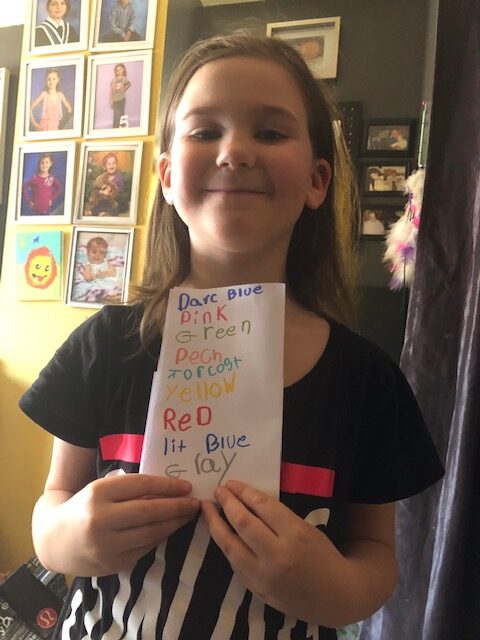 Darc Blue
Pink
Green
Pech
Torcost
Yellow
ReD
lit Blue
Gray